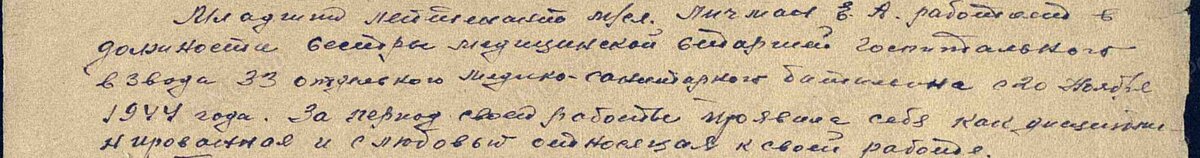 Младший лейтенант м/сл. Личман Е. А. работает в
должности сестры медицинской старшей Госпитального
взвода 33 отдельного медико-санитарного батальона с 20 Ноября
1944 года. За период своей работы проявила себя как дисципли-
нированная и с любовью относящая к своей работе.